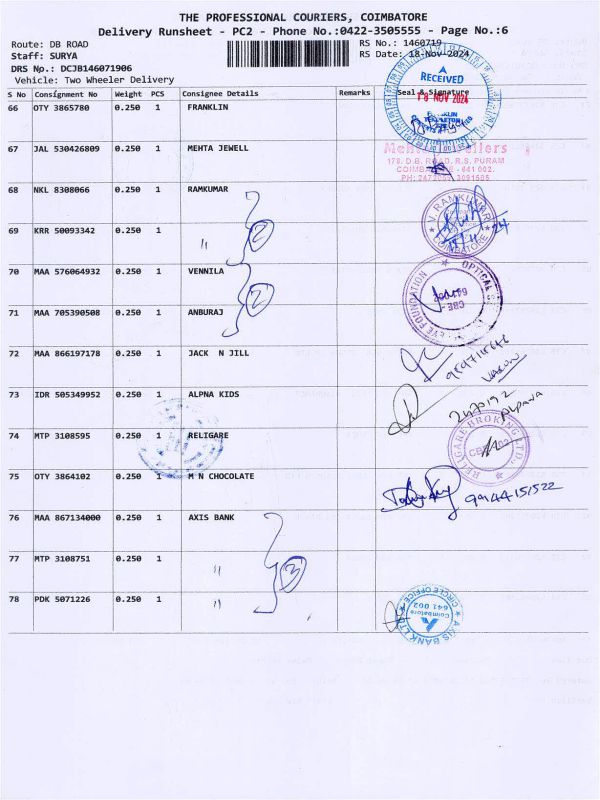 THE PROFESSIONAL COURIERS, COIMBATORE
Delivery Runsheet - PC2 - Phone No.:0422-3505555 - Page No.:6
Route: DB ROAD RS No.: 1460719
Staff: SURYA RS Date: 18-Nov-2024
DRS Np.: DCJB146071906
Vehicle: Two Wheeler Delivery
S No Consignment No Weight PCS Consignee Details Remarks Seal & Signature
RECEIVED
18 NOV 2024
66 OTY 3865780 0.250 1 FRANKLIN
67 JAL 530426809 0.250 1 MEHTA JEWELL
178. D.B. ROAD, R.S. PURAM
COIMBATORE - 641 002.
68 NKL 8308066 0.250 1 RAMKUMAR
V. RAMKUMAR
COIMBATORE
69 KRR 50093342 0.250 1 〃 2
70 MAA 576064932 0.250 1 VENNILA
EYE FOUNDATION OPTICAL
CBE-
71 MAA 705390508 0.250 1 ANBURAJ 2
72 MAA 866197178 0.250 1 JACK N JILL
73 IDR 505349952 0.250 1 ALPNA KIDS
74 MTP 3108595 0.250 1 RELIGARE
RELIGARE BROKING LTD.
75 OTY 3864102 0.250 1 M N CHOCOLATE
9944151522
76 MAA 867134000 0.250 1 AXIS BANK
77 MTP 3108751 0.250 1 〃 3
78 PDK 5071226 0.250 1 〃
AXIS BANK LTD
CIRCLE OFFICE
Coimbatore
641 002